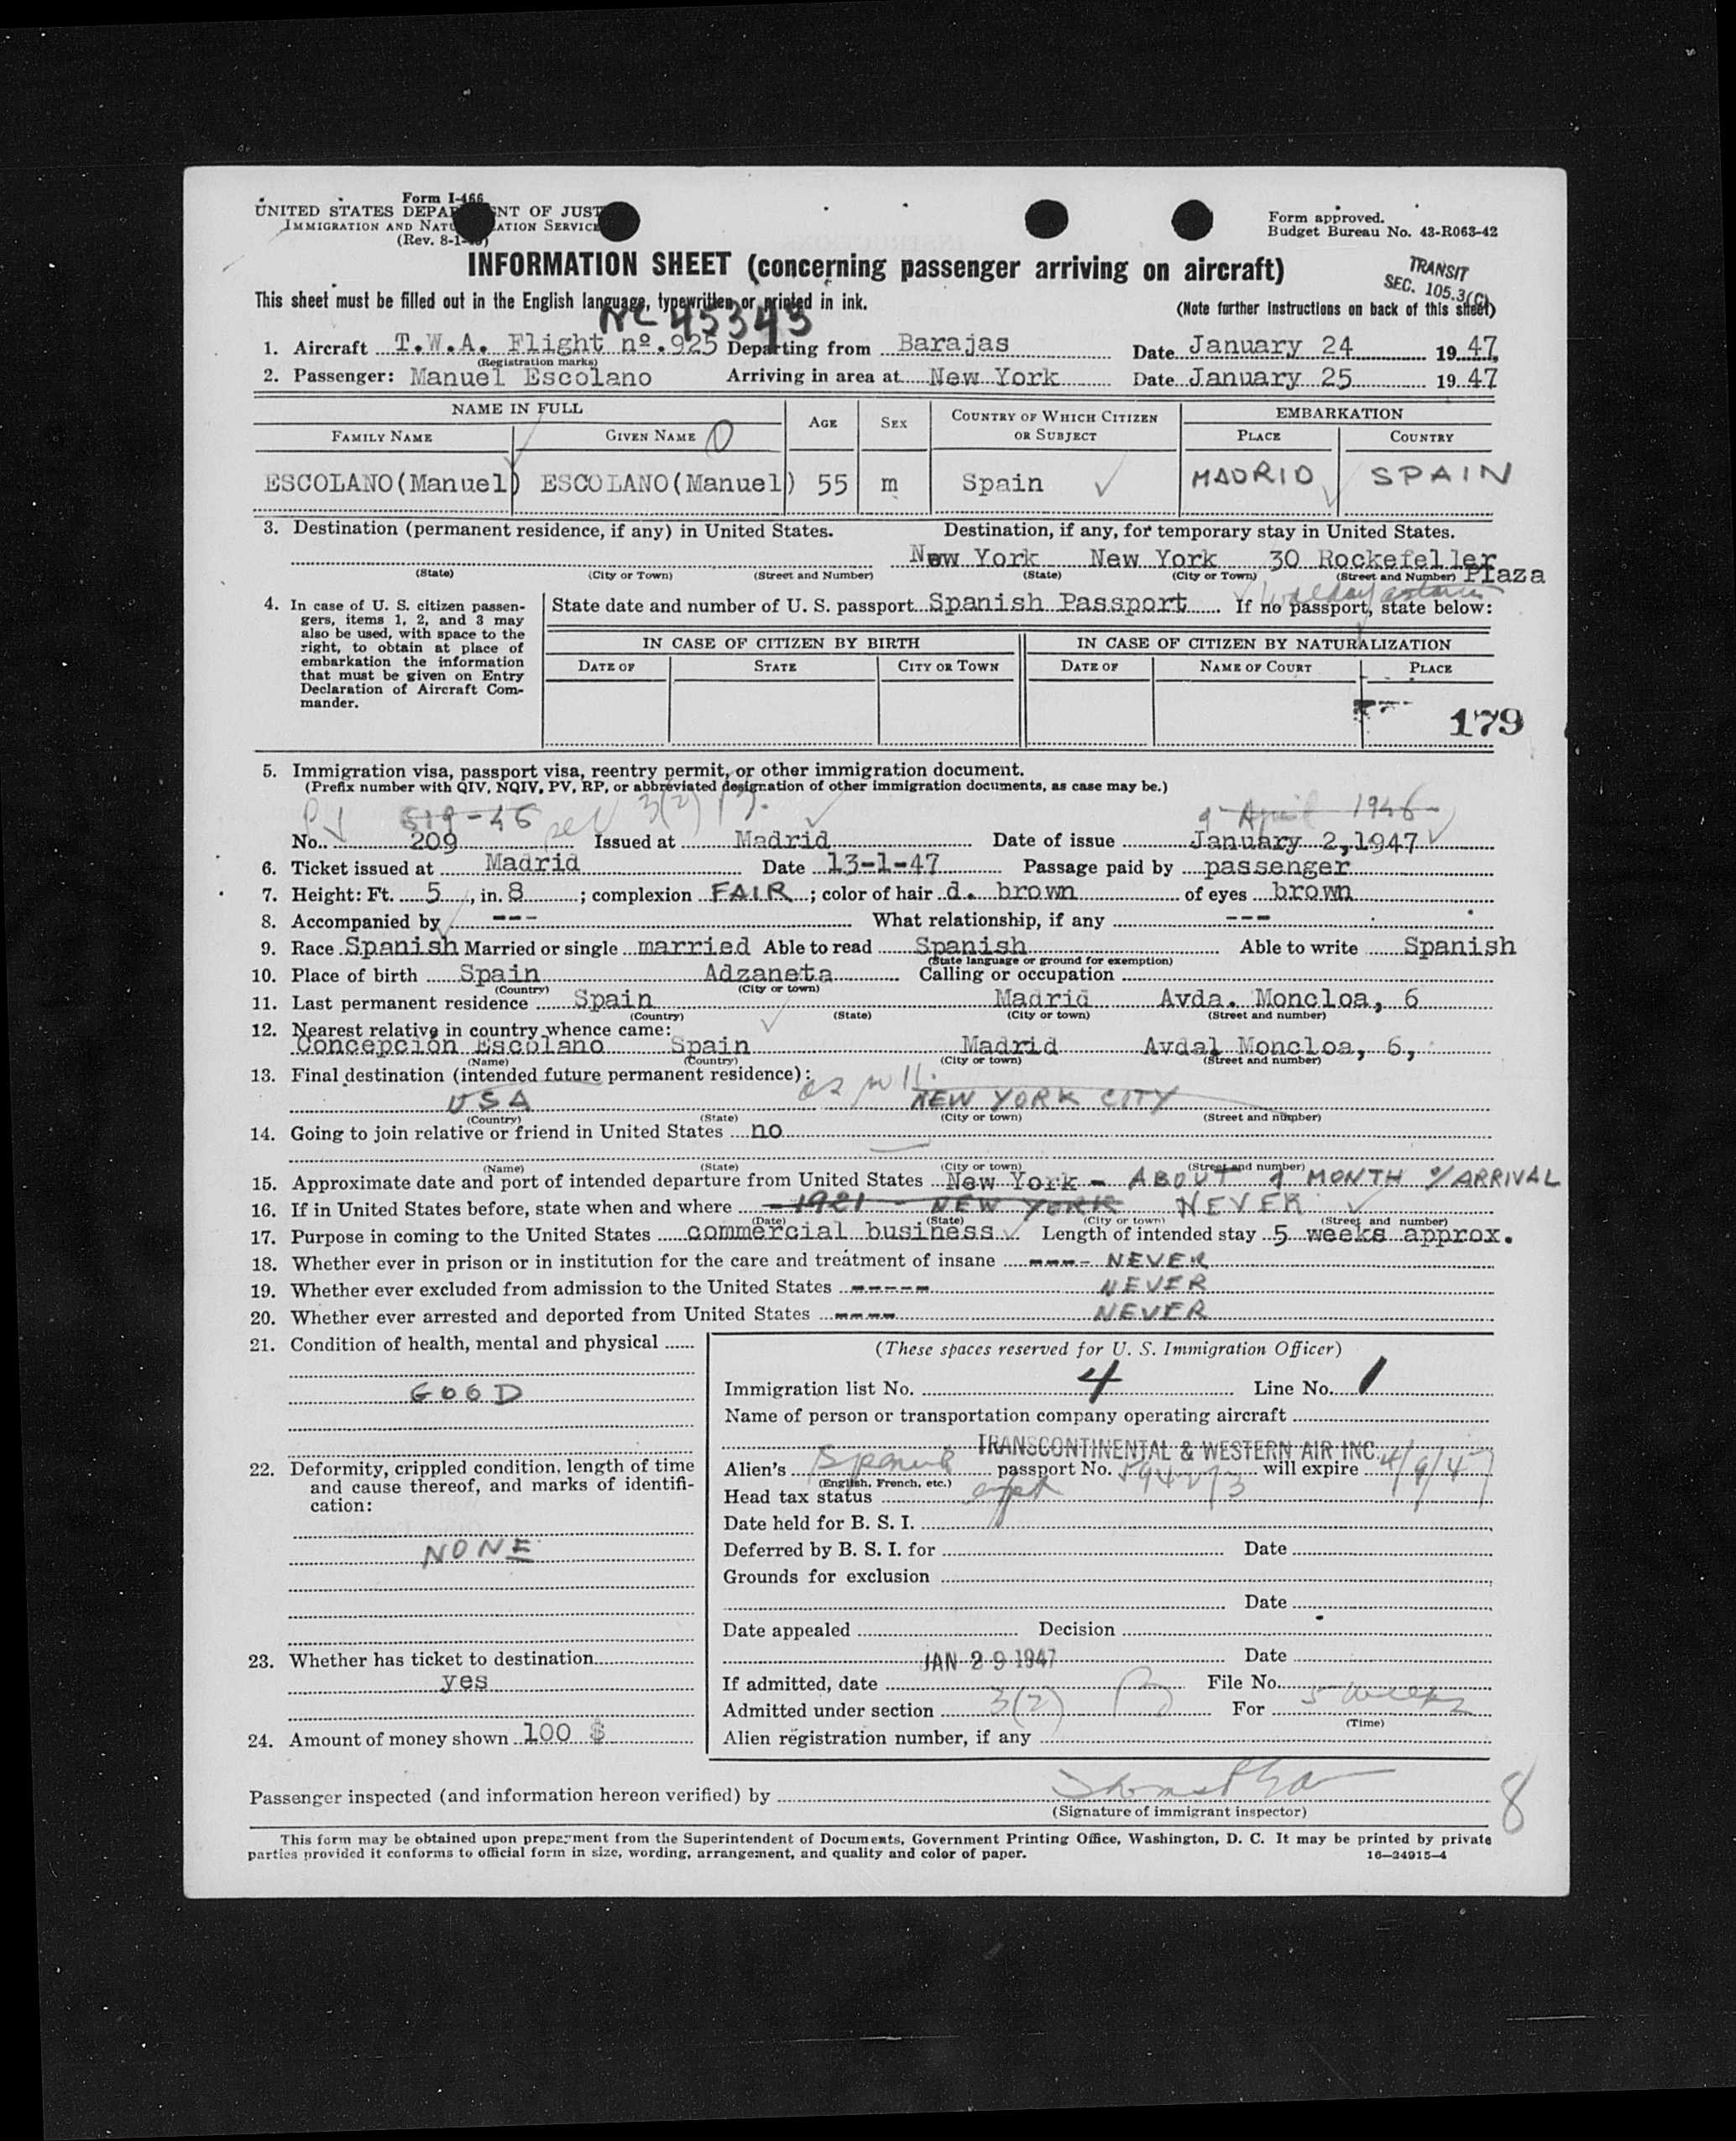 Form I-466
UNITED STATES DEPARTMENT OF JUSTICE
IMMIGRATION AND NATURALIZATION SERVICE
(Rev. 8-1-
Form approved.
Budget Bureau No. 43-R063-42
INFORMATION SHEET (concerning passenger arriving on aircraft)
TRANSIT
SEC. 105.3(C)
This sheet must be filled out in the English language, typewritten or printed in ink.
(Note further instructions on back of this sheet)
NC 45343
1. Aircraft T.W.A. Flight nº.925 Departing from Barajas Date January 24 1947
(Registration marks)
2. Passenger: Manuel Escolano Arriving in area at New York Date January 25 1947
NAME IN FULL AGE SEX COUNTRY OF WHICH CITIZEN OR SUBJECT EMBARKATION
FAMILY NAME GIVEN NAME PLACE COUNTRY
ESCOLANO(Manuel) ESCOLANO(Manuel) 55 m Spain MADRID SPAIN
3. Destination (permanent residence, if any) in United States. Destination, if any, for temporary stay in United States.
New York New York 30 Rockefeller Plaza
(State) (City or Town) (Street and Number) (State) (City or Town) (Street and Number)
4. In case of U. S. citizen passengers, items 1, 2, and 3 may also be used, with space to the right, to obtain at place of embarkation the information that must be given on Entry Declaration of Aircraft Commander.
State date and number of U. S. passport Spanish Passport If no passport, state below:
IN CASE OF CITIZEN BY BIRTH IN CASE OF CITIZEN BY NATURALIZATION
DATE OF STATE CITY OR TOWN DATE OF NAME OF COURT PLACE
179
5. Immigration visa, passport visa, reentry permit, or other immigration document.
(Prefix number with QIV, NQIV, PV, RP, or abbreviated designation of other immigration documents, as case may be.)
PV 519-46 3(2) 9 April 1946
No. 209 Issued at Madrid Date of issue January 2, 1947
6. Ticket issued at Madrid Date 13-1-47 Passage paid by passenger
7. Height: Ft. 5, in. 8; complexion FAIR; color of hair d. brown of eyes brown
8. Accompanied by --- What relationship, if any ---
9. Race Spanish Married or single married Able to read Spanish Able to write Spanish
(State language or ground for exemption)
10. Place of birth Spain Adzaneta Calling or occupation
(Country) (City or town)
11. Last permanent residence Spain Madrid Avda. Moncloa, 6
(Country) (State) (City or town) (Street and number)
12. Nearest relative in country whence came:
Concepción Escolano Spain Madrid Avdal Moncloa, 6,
(Name) (Country) (City or town) (Street and number)
13. Final destination (intended future permanent residence): as in 11.
USA NEW YORK CITY
(Country) (State) (City or town) (Street and number)
14. Going to join relative or friend in United States no
(Name) (State) (City or town) (Street and number)
15. Approximate date and port of intended departure from United States New York - ABOUT 1 MONTH %ARRIVAL
16. If in United States before, state when and where -1921 - NEW YORK NEVER
(Date) (State) (City or town) (Street and number)
17. Purpose in coming to the United States commercial business Length of intended stay 5 weeks approx.
18. Whether ever in prison or in institution for the care and treatment of insane ---- NEVER
19. Whether ever excluded from admission to the United States ----- NEVER
20. Whether ever arrested and deported from United States ---- NEVER
21. Condition of health, mental and physical
GOOD
22. Deformity, crippled condition, length of time and cause thereof, and marks of identification:
NONE
23. Whether has ticket to destination
yes
24. Amount of money shown 100 $
(These spaces reserved for U. S. Immigration Officer)
Immigration list No. 4 Line No. 1
Name of person or transportation company operating aircraft
TRANSCONTINENTAL & WESTERN AIR INC.
Alien's Spanish passport No. will expire 4/9/47
(English, French, etc.)
Head tax status
Date held for B. S. I.
Deferred by B. S. I. for Date
Grounds for exclusion
Date
Date appealed Decision
JAN 29 1947 Date
If admitted, date File No.
Admitted under section 3(2) For 5 weeks
(Time)
Alien registration number, if any
Passenger inspected (and information hereon verified) by
(Signature of immigrant inspector)
8
This form may be obtained upon prepayment from the Superintendent of Documents, Government Printing Office, Washington, D. C. It may be printed by private
parties provided it conforms to official form in size, wording, arrangement, and quality and color of paper.
16—24915-4